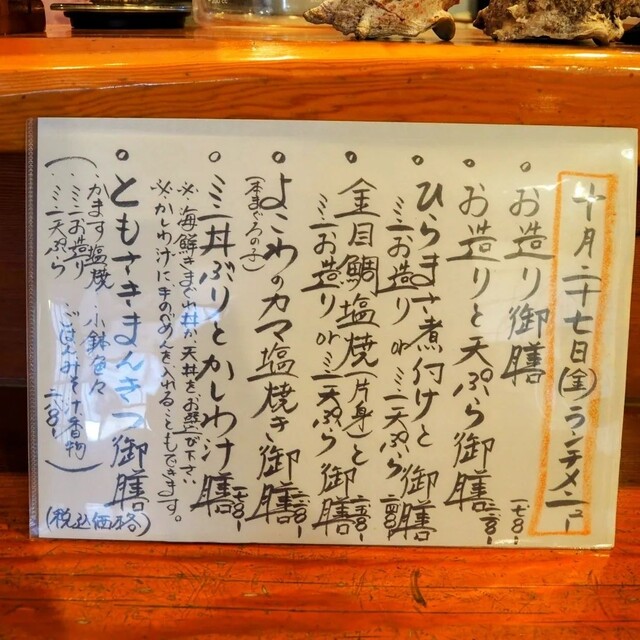 十月二十七日(金)ランチメニュー
○お造り御膳
一七八〇-
○お造りと天ぷら御膳
二一八〇-
○ひらまさ煮付けと
ミニお造りorミニ天ぷら御膳
○金目鯛塩焼(片身)と
ミニお造りorミニ天ぷら御膳
○よこわのカマ塩焼き御膳
(本まぐろの子)
○ミニ丼ぶりとかしわ汁膳
※海鮮きまぐれ丼か天丼をお選び下さい
※かしわ汁に手のべめんを入れることもできます。
○ともさきまんきつ御膳
(かます塩焼 小鉢色々
・ミニお造り ごはんみそ汁香物
・ミニ天ぷら
(税込価格)